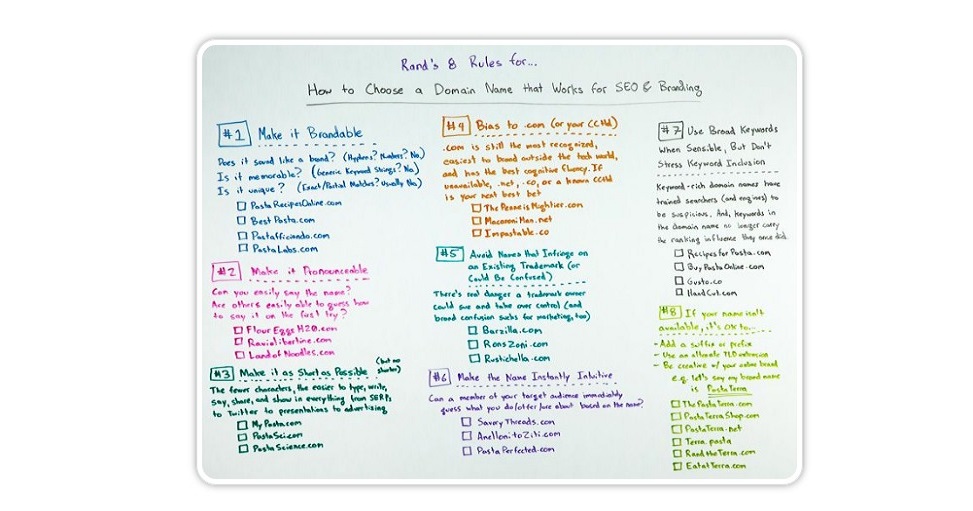 Rand's 8 Rules for...
How to Choose a Domain Name that Works for SEO & Branding
#1 Make it Brandable
Does it sound like a brand? (Hyphens? Numbers? No)
Is it memorable? (Generic Keyword Strings? No)
Is it unique? (Exact/Partial Matches? Usually No)
PastaRecipesOnline.com
BestPasta.com
Pastafficiando.com
PastaLabs.com
#2 Make it Pronounceable
Can you easily say the name?
Are others easily able to guess how
to say it on the first try?
FlourEggsH20.com
Raviolibertine.com
LandofNoodles.com
#3 Make it as Short as Possible (but no
shorter)
The fewer characters, the easier to type, write,
say, share, and show in everything from SERPs
to Twitter to presentations to advertising
MyPasta.com
PastaSci.com
PastaScience.com
#4 Bias to .com (or your CCTLD)
.com is still the most recognized,
easiest to brand outside the tech world,
and has the best cognitive fluency. If
unavailable, .net, .co, or a known ccTLD
is your next best bet
ThePenneisMightier.com
MacaroniMan.net
Impastable.co
#5 Avoid Names that Infringe on
an Existing Trademark (or
Could Be Confused)
There's real danger a trademark owner
could sue and take over control (and
brand confusion sucks for marketing, too)
Barzilla.com
RonsZoni.com
Rustichella.com
#6 Make the Name Instantly Intuitive
Can a member of your target audience immediately
guess what you do/offer/are about based on the name?
SavoryThreads.com
AnellonitoZiti.com
PastaPerfected.com
#7 Use Broad Keywords
When Sensible, But Don't
Stress Keyword Inclusion
Keyword-rich domain names have
trained searchers (and engines) to
be suspicious. And, keywords in
the domain name no longer carry
the ranking influence they once did.
RecipesforPasta.com
BuyPastaOnline.com
Gusto.co
HardCut.com
#8 If your name isn't
available, it's OK to...
- Add a suffix or prefix
- Use an alternate TLD extension
- Be creative w/ your entire brand
e.g. let's say my brand name
is PastaTerra
ThePastaTerra.com
PastaTerraShop.com
PastaTerra.net
Terra.pasta
RandtheTerra.com
EatatTerra.com